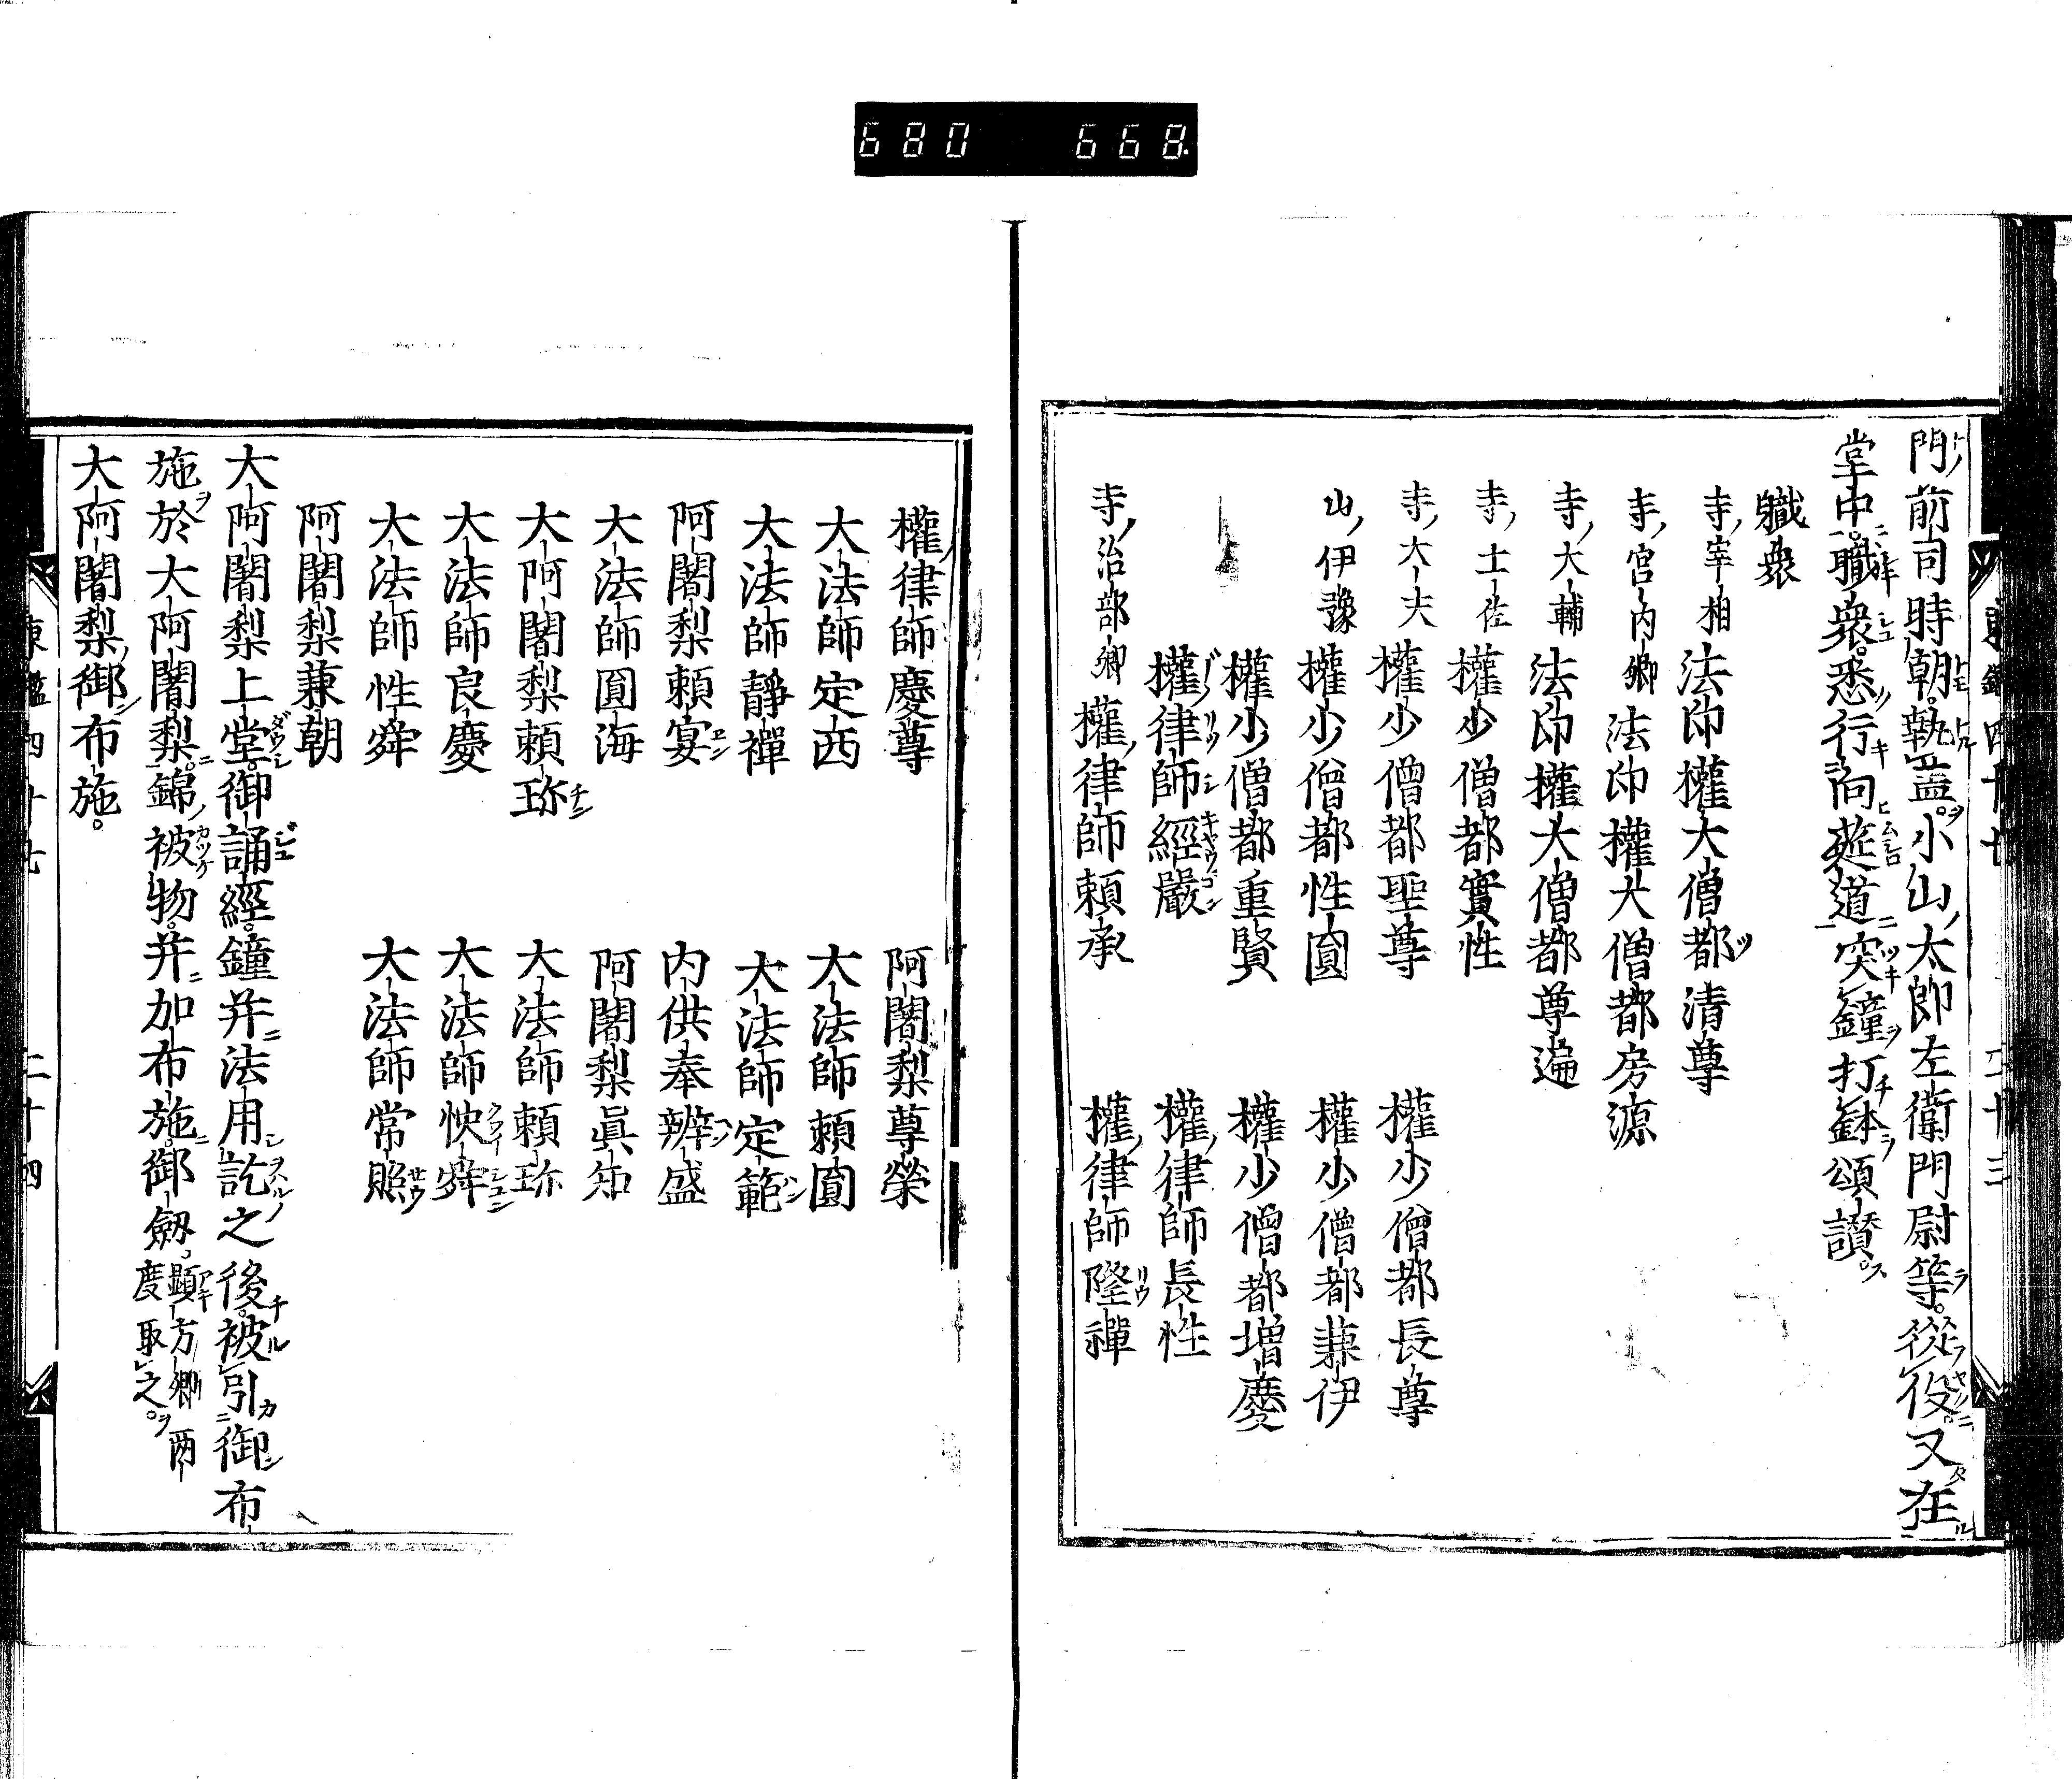 680 668
門前司時朝。執蓋。小山太郎左衛門尉等。從役。又在
堂中。職衆。悉行向莚道。突鐘打鉢頌讃。
職衆
寺宰相 法印權大僧都清尊
寺宮内卿 法印權大僧都房源
寺大輔 法印權大僧都尊遍
寺土佐 權少僧都實性
寺大夫 權少僧都聖尊 權少僧都長尊
山伊豫 權少僧都性圓 權少僧都兼伊
權少僧都重賢 權少僧都増慶
權律師經嚴 權律師長性
寺治部卿 權律師頼承 權律師隆禪
東鑑四十七 二十三
權律師慶尊 阿闍梨尊榮
大法師定西 大法師頼圓
大法師靜禪 大法師定範
阿闍梨頼宴 内供奉辨盛
大法師圓海 阿闍梨眞知
大阿闍梨頼珎 大法師頼珎
大法師良慶 大法師快舜
大法師性舜 大法師常照
阿闍梨兼朝
大阿闍梨上堂。御誦經。鐘并法用訖之後。被引御布
施於大阿闍梨。錦被物。并加布施。御劔。顯方卿兩度取之。
大阿闍梨御布施。
東鑑四十七 二十四